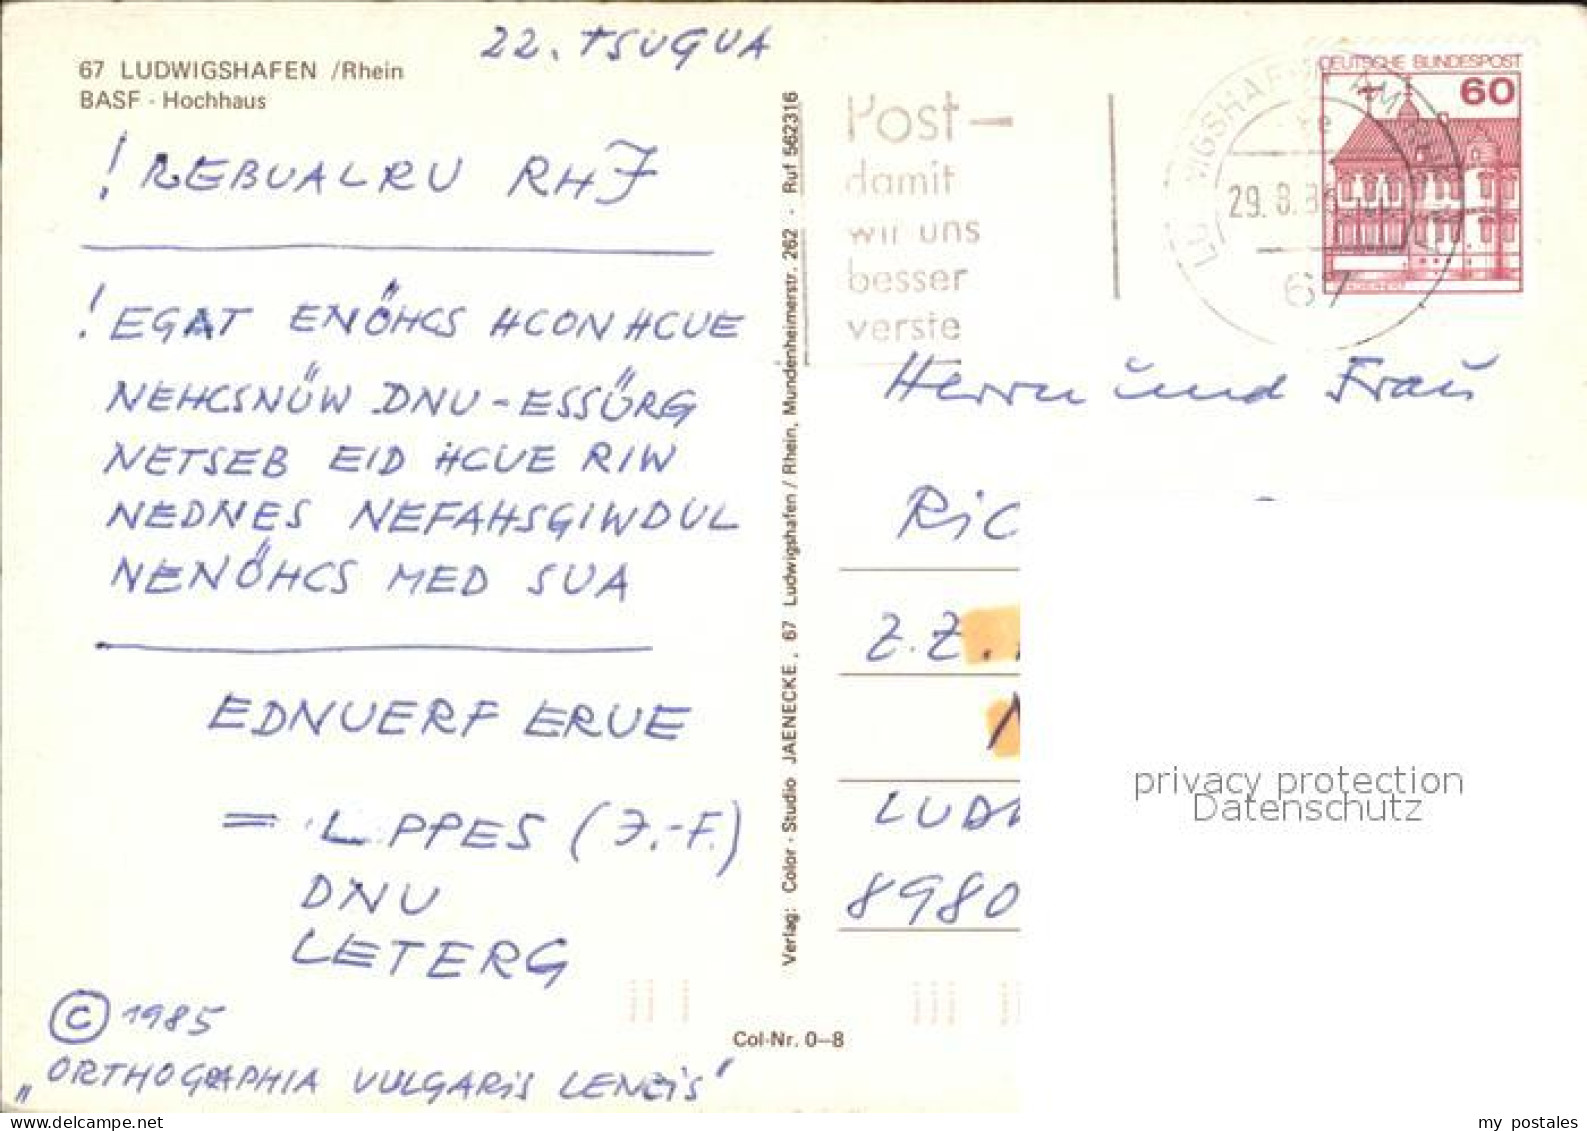 22. TSUGUA
67 LUDWIGSHAFEN /Rhein
BASF - Hochhaus
! REBUALRU RHJ
! EGAT ENÖHCS HCON HCUE
NEHCSNÜW DNU-ESSÜRG
NETSEB EID HCUE RIW
NEDNES NEFAHSGIWDUL
NENÖHCS MED SUA
EDNUERF ERUE
= L PPES (J.-F.)
DNU
LETERG
© 1985
„ORTHOGRAPHIA VULGARIS LENZIS"
Verlag: Color - Studio JAENECKE, 67 Ludwigshafen / Rhein, Mundenheimerstr. 262 - Ruf 562316
Col-Nr. 0-8
Post-
damit
wir uns
besser
verste
29.8.8
67
DEUTSCHE BUNDESPOST
60
Herrn und Frau
Ric
z.Z.
LUDW
8980
privacy protection
Datenschutz
my postales